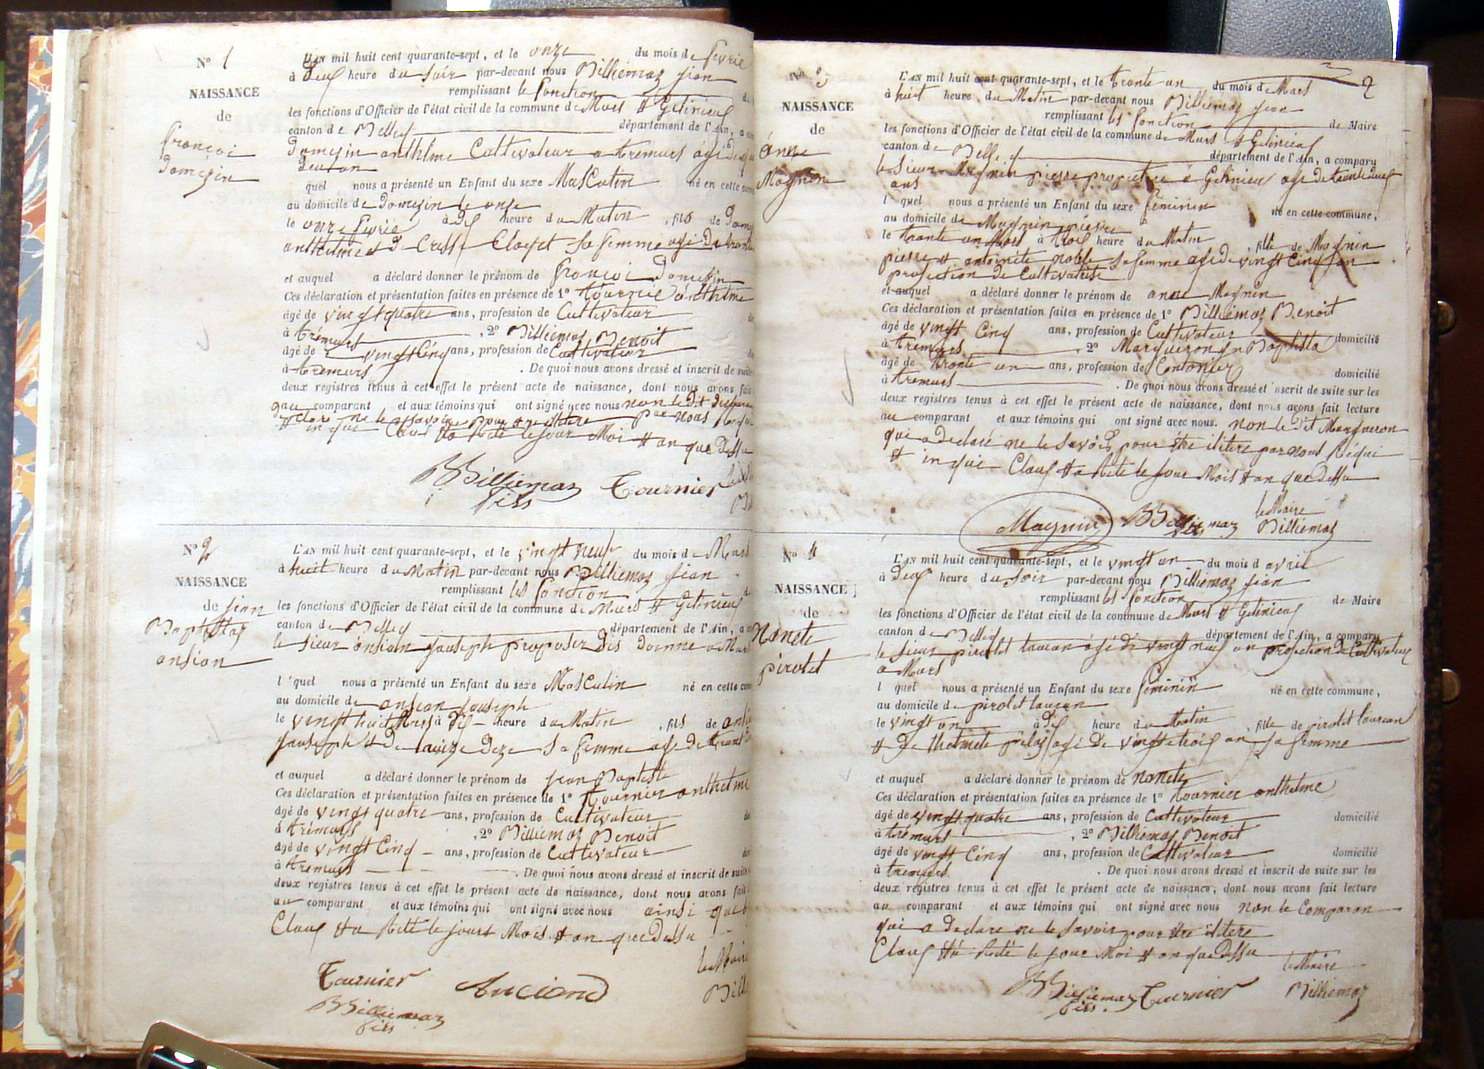 N° 1
NAISSANCE
de
françoi
Domejin
L'AN mil huit cent quarante-sept, et le onze du mois de fevrie
à deux heure du soir par-devant nous Billiemaz jean
remplissant le fonction
les fonctions d'Officier de l'état civil de la commune de Murs et Gelinieux
canton de Belley département de l'Ain, a
Domejin anthelme Cultivateur a tremurs agé de
quel nous a présenté un Enfant du sexe Masculin né en cette
au domicile de Domejin le onze
le onze fevrie à heure du Matin, fils de
anthelme et Clayet sa femme agé de
et auquel a déclaré donner le prénom de françoi Domejin
Ces déclaration et présentation faites en présence de 1° tournie anthelme
âgé de vingt quatre ans, profession de Cultivateur
à trémurs 2° Billiemaz Benoit
âgé de vingt Cinq ans, profession de Cultivateur
à tremurs . De quoi nous avons dressé et inscrit de suite
deux registres tenus à cet effet le présent acte de naissance, dont nous avons fait
au comparant et aux témoins qui ont signé avec nous non le dit
a declare ne le savoir pour être par nous
Claus et a Recte le jour Moi et an que Dessu
B Billiemaz fils Tournier
N° 2
NAISSANCE
de jean
Baptistas
ansian
L'AN mil huit cent quarante-sept, et le vingt neuf du mois de Mars
à huit heure du Matin par-devant nous Billiemaz jean
remplissant les fonction
les fonctions d'Officier de l'état civil de la commune de Murs et Gelinieux
canton de Belley département de l'Ain, a
le sieur ansian jauseph proposer Des Doanne a Murs
l quel nous a présenté un Enfant du sexe Masculin né en cette
au domicile de ansian jauseph
le vingt huit Mars à heure du Matin, fils de
jauseph et De sa femme age De
et auquel a déclaré donner le prénom de jean Baptiste
Ces déclaration et présentation faites en présence de 1° tournier anthelme
âgé de vingt quatre ans, profession de Cultivateur
à trémurs , 2° Billiemaz Benoit
âgé de vingt Cinq ans, profession de Cultivateur
à tremurs . De quoi nous avons dressé et inscrit de suite
deux registres tenus à cet effet le présent acte de naissance, dont nous avons fait
au comparant et aux témoins qui ont signé avec nous ainsi que
Claus et a Recte le jours Mois et an que Dessu
le Maire
Tournier Anciand
B Billiemaz
fils
N° 3
NAISSANCE
de
Anne
Magnin
2
L'AN mil huit cent quarante-sept, et le trante un du mois de Mars
à huit heure du Matin par-devant nous Billiemaz jean
remplissant les fonction de Maire
les fonctions d'Officier de l'état civil de la commune de Murs et Gelinieux
canton de Belley département de l'Ain, a compary
le Sieur Magnin pierre propietaire a Gelinieux age de
ans
l quel nous a présenté un Enfant du sexe feminin né en cette commune,
au domicile de Magnin pierre
le trante un Mars à trois heure du Matin, fille de Magnin
pierre et antoinete sa femme age de vingt Cinq an
profection de Cultivateur
et auquel a déclaré donner le prénom de anne Magnin
Ces déclaration et présentation faites en présence de 1° Billiemaz Benoit
âgé de vingt Cinq ans, profession de Cultivateur domicilié
à tremurs , 2° Margueron Baptista
âgé de trante un ans, profession de Cantonier domicilié
à tremurs . De quoi nous avons dressé et inscrit de suite sur les
deux registres tenus à cet effet le présent acte de naissance, dont nous avons fait lecture
au comparant et aux témoins qui ont signé avec nous. non le dit Margueron
qui a Declaré ne le Savoir pour être iliterè par nous
Claus et a Recte le jour Mois et an que Dessu
Magnin B Billiemaz fils le Maire
Billiemaz
N° 4
NAISSANCE
de
Nanete
pirolet
L'AN mil huit cent quarante-sept, et le vingt un du mois d avril
à deux heure du soir par-devant nous Billiemaz jean
remplissant les fonction de Maire
les fonctions d'Officier de l'état civil de la commune de Murs et Gelinieux
canton de Belley département de l'Ain, a compary
le sieur pirolet lauran agé de vingt neuf an profection de Cultivateur
a Murs
l quel nous a présenté un Enfant du sexe feminin né en cette commune,
au domicile de pirolet lauran
le vingt un à heure du Matin, fille de pirolet lauran
et de agé de vingt trois an sa femme
et auquel a déclaré donner le prénom de nanete
Ces déclaration et présentation faites en présence de 1° tournier anthelme
âgé de vingt quatre ans, profession de Cultivateur domicilié
à trémurs , 2° Billiemaz Benoit
âgé de vingt Cinq ans, profession de Cultivateur domicilié
à tremurs . De quoi nous avons dressé et inscrit de suite sur les
deux registres tenus à cet effet le présent acte de naissance, dont nous avons fait lecture
au comparant et aux témoins qui ont signé avec nous non le Comparan
qui a Declare ne le Savoir pour être iliterè
Claus et a Recté le jour Moi et an que Dessu
le Maire
B Billiemaz fils Tournier Billiemaz